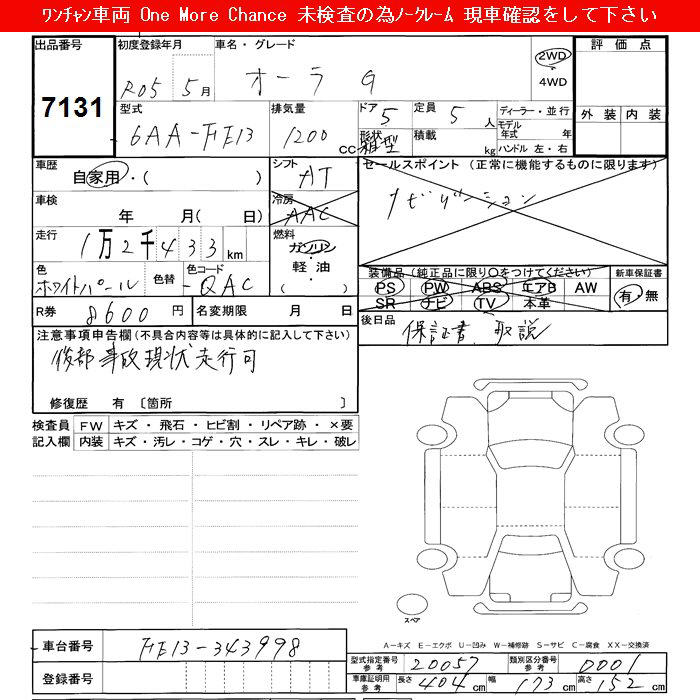 ﾜﾝﾁｬﾝ車両 One More Chance 未検査の為ﾉｰｸﾚｰﾑ 現車確認をして下さい
出品番号 初度登録年月 車名・グレード 2WD 評価点
7131 R05 5月 オーラ G 4WD
型式 排気量 ドア 5 定員 5 人 ディーラー・並行 外装 内装
6AA-FE13 1200 cc 形状 箱型 積載 kg モデル年式 年
ハンドル 左・右
車歴 自家用・( ) シフト AT セールスポイント (正常に機能するものに限ります)
車検 年 月( 日) 冷房 AAC ナビゲーション
走行 1万2千433km 燃料 ガソリン
軽・油 ( )
色 ホワイトパール 色替 色コード -QAC 装備品(純正品に限り○をつけてください) 新車保証書
PS PW ABS エアB AW 有・無
SR ナビ TV 本革
R券 8600円 名変期限 月 日 後日品 保証書 取説
注意事項申告欄(不具合内容等は具体的に記入して下さい)
後部事故現状走行可
修復歴 有〔箇所 〕
検査員 FW キズ・飛石・ヒビ割・リペア跡・×要
記入欄 内装 キズ・汚レ・コゲ・穴・スレ・キレ・破レ
スペア
A－キズ E－エクボ U－凹み W－補修跡 S－サビ C－腐食 XX－交換済
車台番号 FE13-343998
型式指定番号 参考 20057 類別区分番号 参考 0001
登録番号 車庫証明用 参考 長さ 404cm 幅 173cm 高さ 152cm